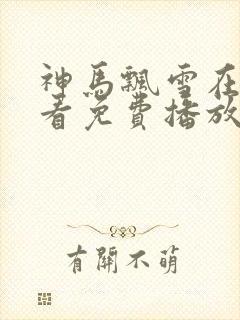 神馬飄雪在
看免費播放
有關不萌